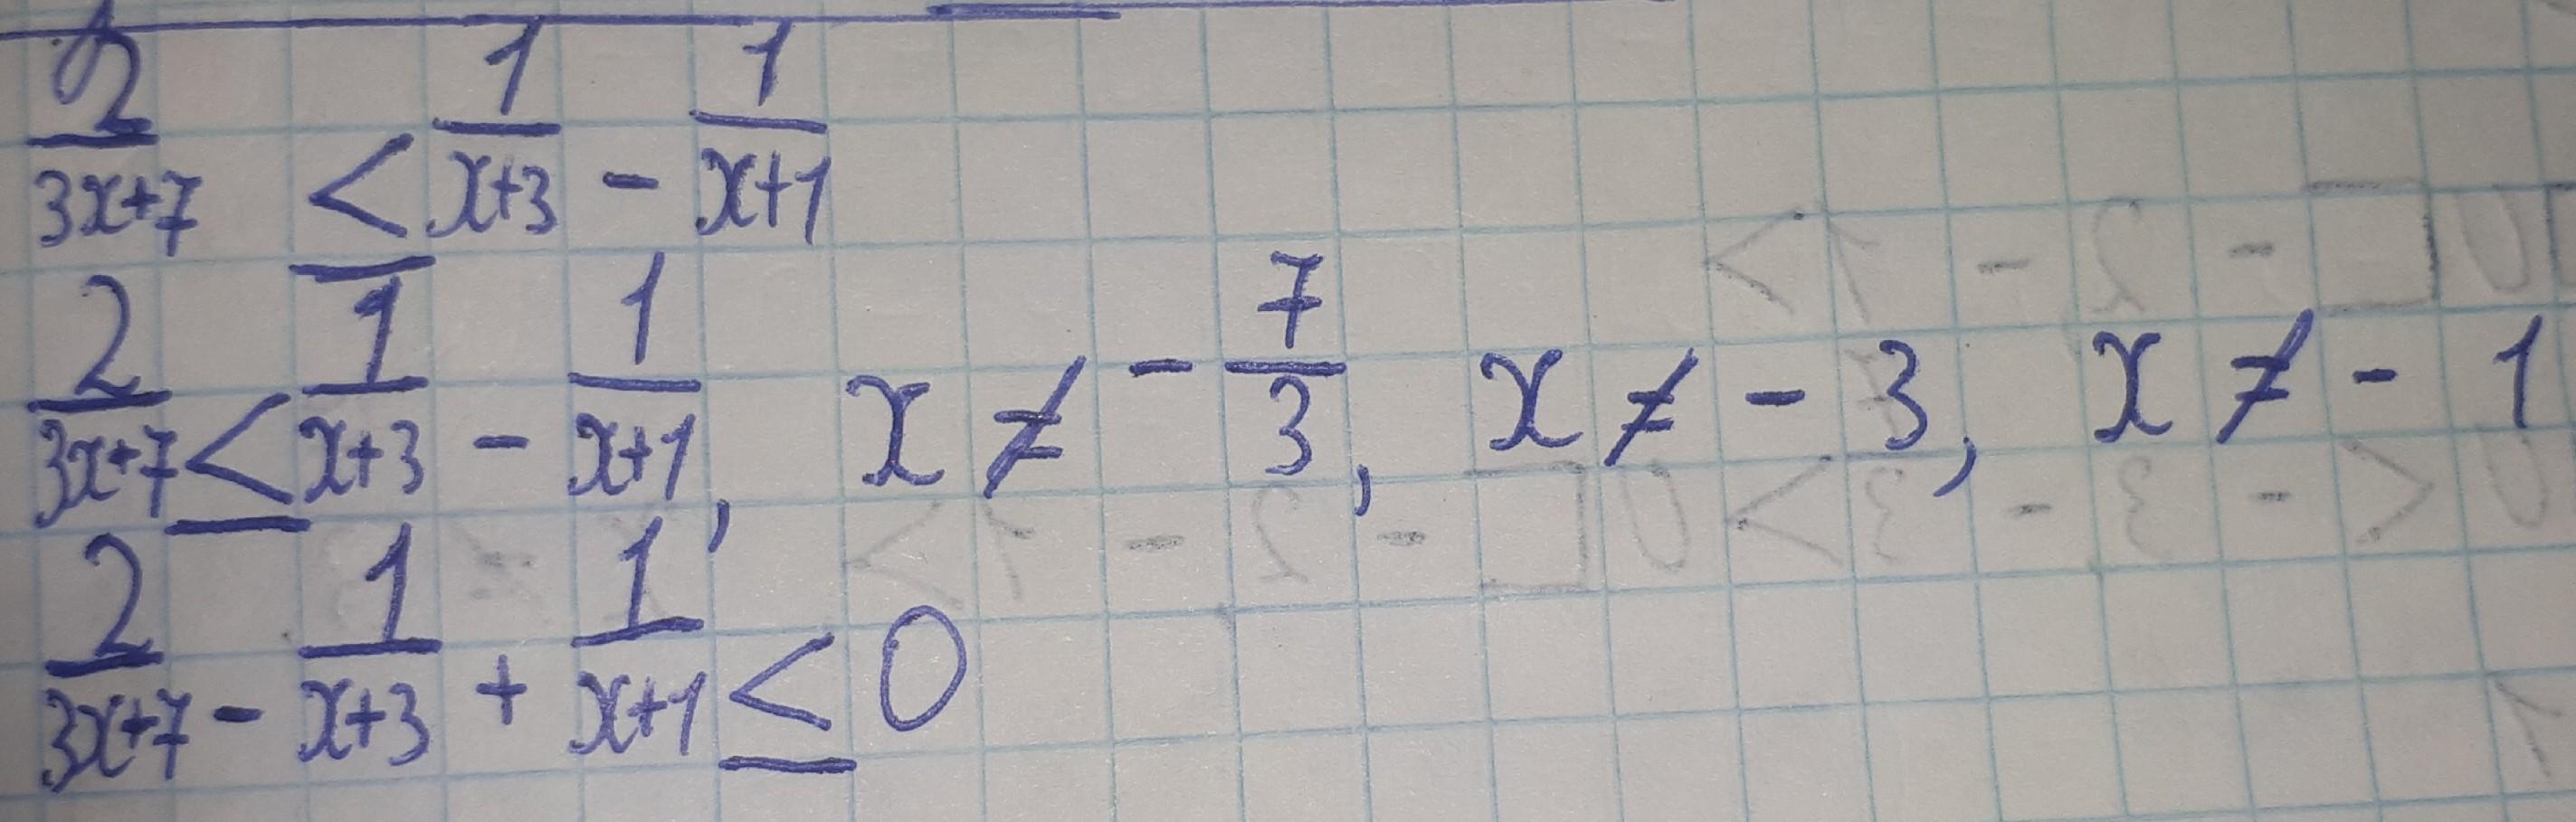 2/(3x+7) ≤ 1/(x+3) - 1/(x+1)
2/(3x+7) ≤ 1/(x+3) - 1/(x+1), x ≠ -7/3, x ≠ -3, x ≠ -1
2/(3x+7) - 1/(x+3) + 1/(x+1) ≤ 0